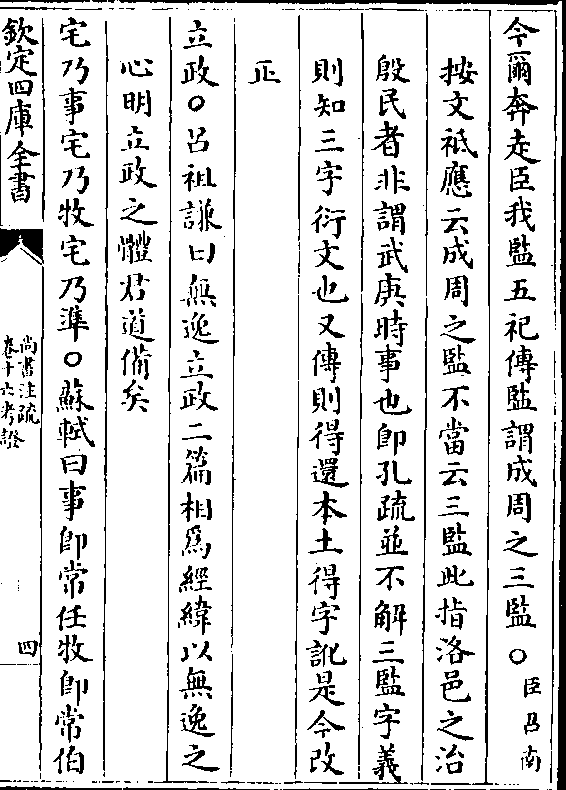 今爾奔走臣我監五祀傳監謂成周之三監○臣召南
按文祗應云成周之監不當云三監此指洛邑之治
殷民者非謂武庚時事也卽孔疏並不解三監字義
則知三字衍文也又傳則得還本土得字訛是今改
正
立政○呂祖謙曰無逸立政二篇相爲經緯以無逸之
心明立政之體君道備矣
宅乃事宅乃牧宅乃準○蘇軾曰事卽常任牧卽常伯
欽定四庫全書
尚書注疏
卷十六考證
四